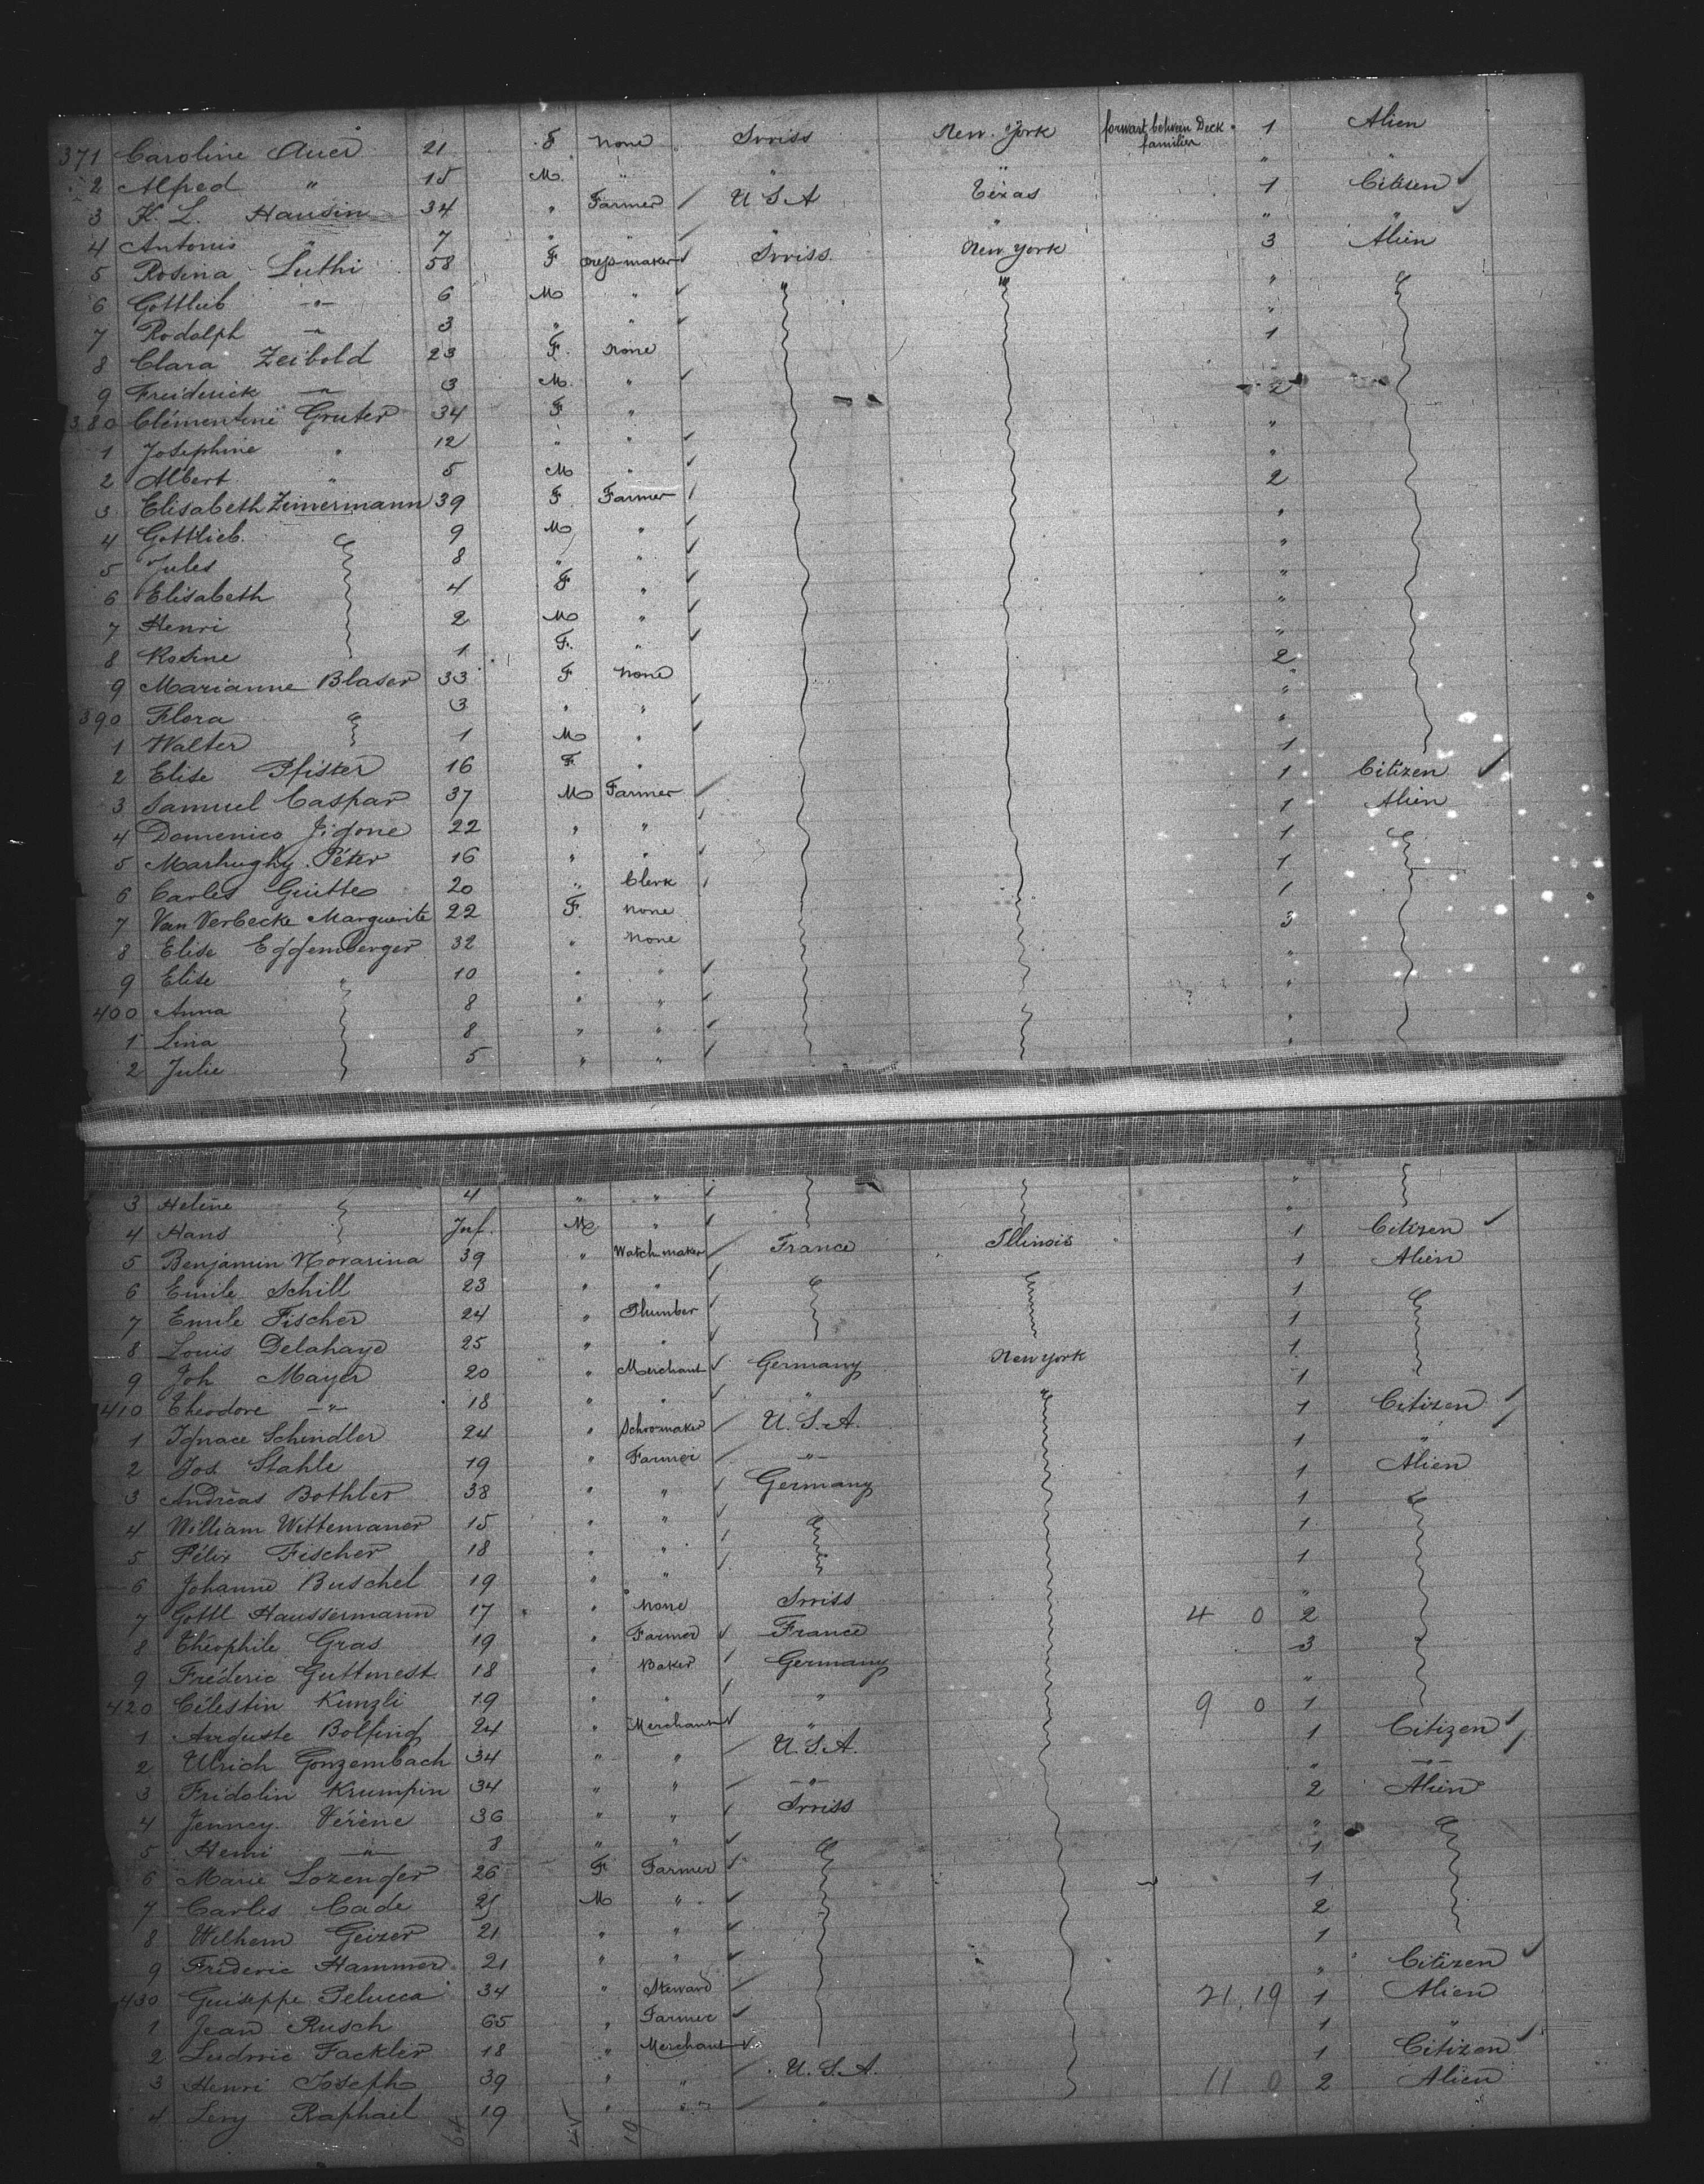 371 Caroline Auer 21 F None Swiss New York forwart between Deck familien 1 Alien
2 Alfred " 15 M. " " " " "
3 K. L. Hausin 34 " Farmer U S A Texas 1 Citizen
4 Antonis " 7 " " " " " "
5 Rosina Luthi 58 F Dressmaker Swiss New York 3 Alien
6 Gottlieb -"- 6 M " " " "
7 Rodolph -"- 3 " " "
8 Clara Zeibold 23 F. None 1
9 Freiderick -"- 3 M. "
380 Clémentine Gruter 34 F " 2
1 Josephine " 12 " " "
2 Albert " 5 M " "
3 Elisabeth Zimermann 39 F Farmer 2
4 Gottlieb 9 M " "
5 Jules 8 " " "
6 Elisabeth 4 F " "
7 Henri 2 M " "
8 Rosine 1 F. " "
9 Marianne Blaser 33 F None 2
390 Flora 3 " " "
1 Walter 1 M " "
2 Elise Pfister 16 F " 1
3 Samuel Caspar 37 M Farmer 1 Citizen
4 Domenico Jigone 22 " " 1 Alien
5 Marhughy Péter 16 " " 1
6 Carles Gutte 20 " Clerk 1
7 Van Verbecke Marguerite 22 F. None 1
8 Elise Eggemberger 32 " None 3
9 Elise " 10 " " "
400 Anna 8 " " "
1 Lina 8 " " "
2 Julie 5 " " "
3 Helene 4 " " "
4 Hans Inf. M " "
5 Benjamin Novarina 39 " Watchmaker France Illinois 1 Citizen
6 Emile Schill 23 " " 1 Alien
7 Emile Fischer 24 " Plumber 1
8 Louis Delahaye 25 " " 1
9 Joh Mayer 20 " Merchant Germany New York 1
410 Theodore -"- 18 " " " " 1
1 Ignace Schindler 24 " Schoomaker U. S. A. 1 Citizen
2 Jos Stahle 19 " Farmer -"- 1 "
3 Andréas Bothler 38 " " Germany 1 Alien
4 William Wittemaner 15 " " 1
5 Félix Fischer 18 " " 1
6 Johann Buschel 19 " " 1
7 Gottl Haussermann 17 " None Swiss "
8 Théophile Gras 19 " Farmer France 4 0 2
9 Fréderic Guttmest 18 " Baker Germany 3
420 Célestin Kunzli 19 " " " "
1 Auguste Bolfing 24 " Merchant " 9 0 1
2 Ulrich Gonzembach 34 " " U. S. A. 1 Citizen
3 Fridolin Krumpin 34 " " -"- " -"-
4 Jenney Vérène 36 " " Swiss 2 Alien
5 Henri -"- 8 " " "
6 Marie Lozenger 26 F Farmer 1
7 Carles Cade 25 M " 1
8 Wilhem Geizer 21 " " 2
9 Fréderic Hammer 21 " " 1
430 Guiseppe Pelucca 34 " Steward " Citizen
1 Jean Rusch 65 " Farmer 21 19 1 Alien
2 Ludwic Fackler 18 " Merchant 1 "
3 Henri Joseph 39 " " U. S. A. 1 Citizen
4 Levy Raphael 19 " " " 11 0 2 Alien
64 45 19